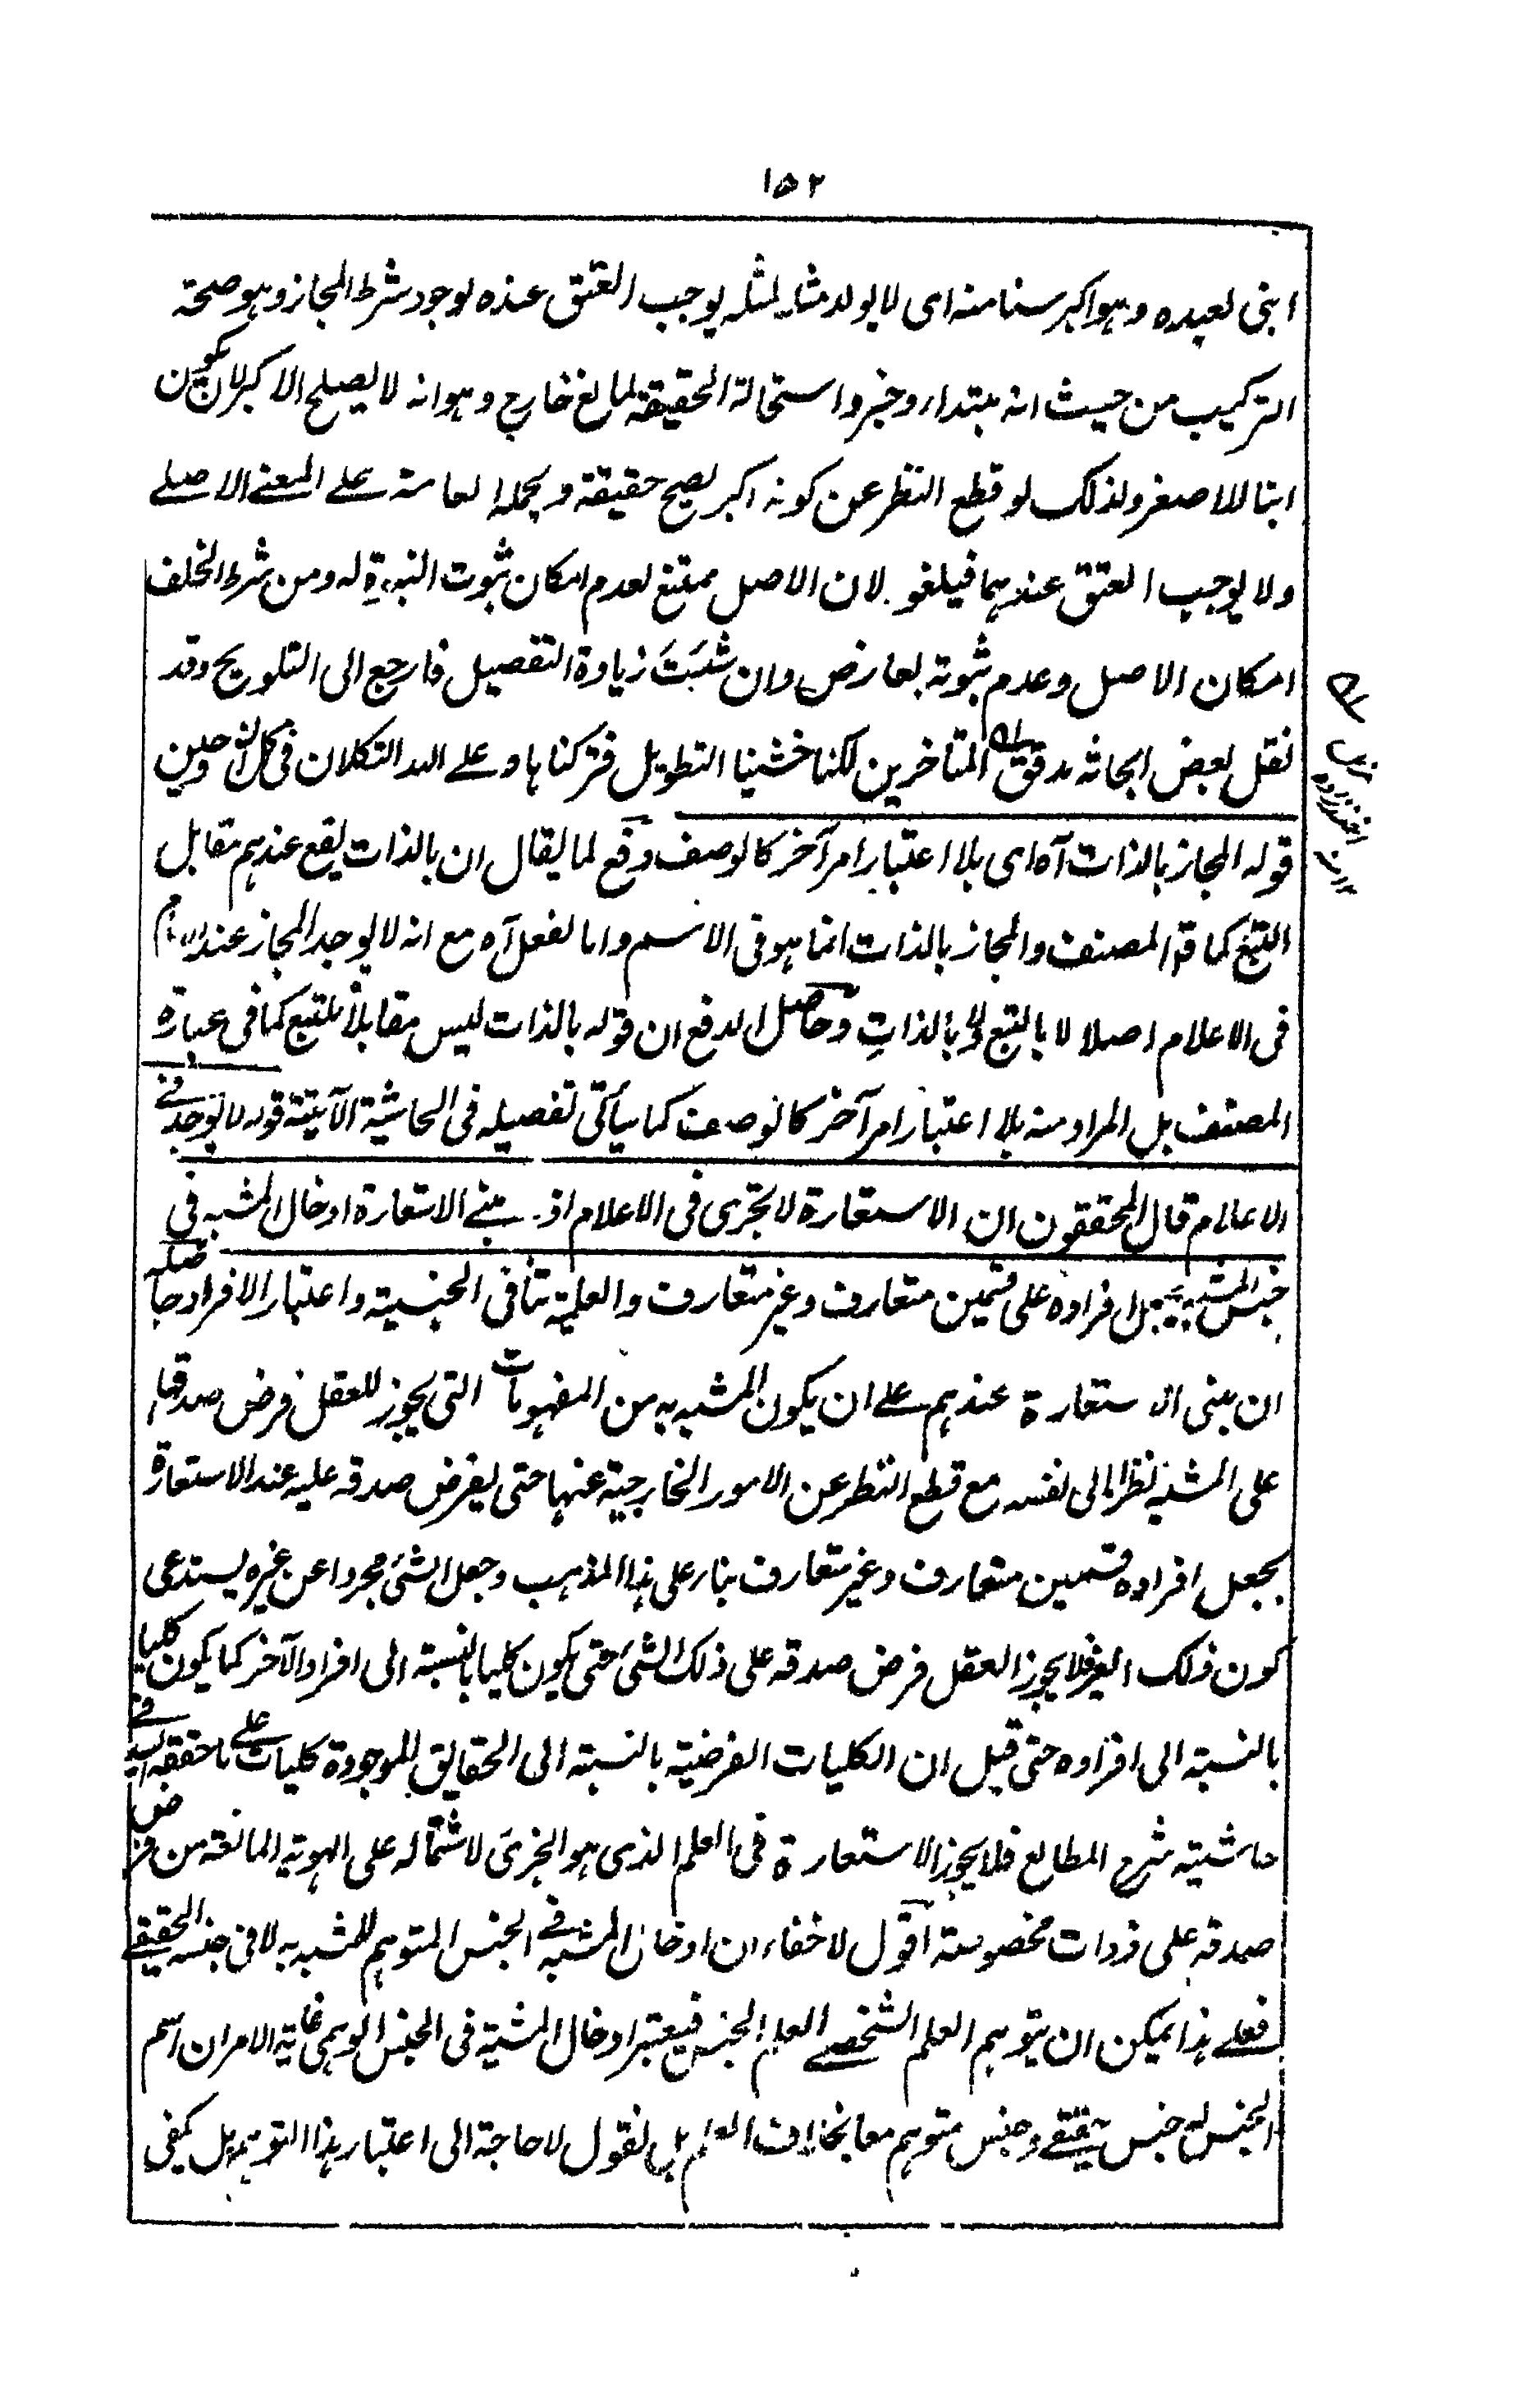 ١٥٢
ابنى لعبده وهو اكبر سنا منه اى لا يولد مثله لمثله يوجب العتق عنده لوجود شرط المجاز وهو صحة
التركيب من حيث انه مبتدا وخبر واستحالة الحقيقة لمانع خارج وهو انه لا يصلح الاكبر لان يكون
ابنا للاصغر ولذلك لو قطع النظر عن كونه اكبر يصح حقيقة ويحمله العامة على المعنى الاصلى
ولا يوجب العتق عندهما فيلغو لان الاصل ممتنع لعدم امكان ثبوت البنوة له ومن شرط الخلف
امكان الاصل وعدم ثبوته لعارض وان شئت زيادة التفصيل فارجع الى التلويح وقد
نقل بعض ابحاثه مدقق المتأخرين لكنا خشينا التطويل فتركناها وعلى الله التكلان فى كل
قوله المجاز بالذات آه اى بلا اعتبار امر آخر كالوصف دفع لما يقال ان بالذات يقع عندهم مقابل
التبع كما المصنف والمجاز بالذات انما هو فى الاسم واما الفعل آه مع انه لا يوجد المجاز عندهم
فى الاعلام اصلا لا بالتبع ولا بالذات وحاصل الدفع ان قوله بالذات ليس مقابلا للتبع كما فى عبارة
المصنف بل المراد منه بلا اعتبار امر آخر كالوصف كما سيأتى تفصيله فى الحاشية الآتية قوله لا يوجد فى
الاعلام قال المحققون ان الاستعارة لا تجرى فى الاعلام اذ مبنى الاستعارة ادخال المشبه فى
جنس المشبه به بجعل افراده على قسمين متعارف وغير متعارف والعلمية تنافى الجنسية واعتبار الافراد حاصله
ان مبنى الاستعارة عندهم على ان يكون المشبه به من المفهومات التى يجوز للعقل فرض صدقها
على المشبه نظرا الى نفسه مع قطع النظر عن الامور الخارجية عنها حتى يفرض صدقه عليه عند الاستعارة
بجعل افراده قسمين متعارف وغير متعارف بناء على هذا المذهب وجعل الشئ مجردا عن غيره يستدعى
كون ذلك الغير فلا يجوز العقل فرض صدقه على ذلك الشئ حتى يكون كليا بالنسبة الى افراد الآخر كما يكون كليا
بالنسبة الى افراده حتى قيل ان الكليات الفرضية بالنسبة الى الحقايق الموجودة كليات على ما حققه السيد فى
حاشية شرح المطالع فلا يجوز الاستعارة فى العلم الذى هو الجزئى لاشتماله على الهوية المانعة من فرض
صدقه على ذوات مخصوصة اقول لا خفاء ان ادخال المشبه فى الجنس المتوهم للمشبه به لا فى جنسه الحقيقى
فعلى هذا يمكن ان يتوهم العلم الشخصى العلم الجنس فيعتبر ادخال المشبه فى الجنس الوهمى غاية الامر ان اسم
الجنس له جنس حقيقى وجنس متوهم معا بخلاف العلم بل نقول لا حاجة الى اعتبار هذا التوهم بل يكفى